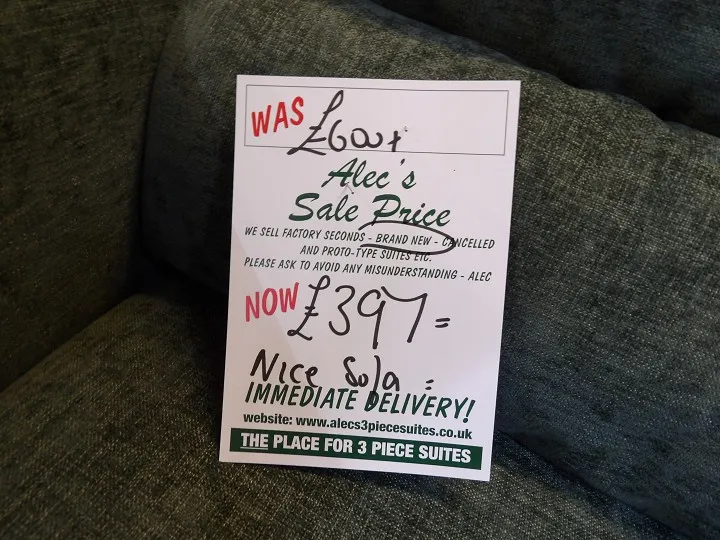 WAS £600+
Alec's
Sale Price
WE SELL FACTORY SECONDS - BRAND NEW - CANCELLED
AND PROTO-TYPE SUITES ETC.
PLEASE ASK TO AVOID ANY MISUNDERSTANDING - ALEC
NOW £397=
Nice Sofa =
IMMEDIATE DELIVERY!
website: www.alecs3piecesuites.co.uk
THE PLACE FOR 3 PIECE SUITES